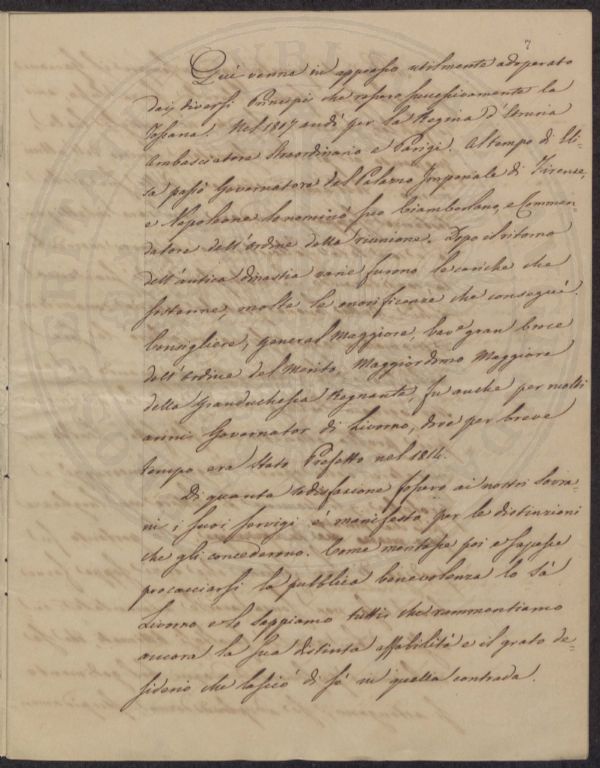 7
Qui venne in appresso utilmente adoperato
dai diversi Principi che ressero successivamente la
Toscana. Nel 1807 andò per la Regina d'Etruria
Ambasciatore straordinario a Parigi. Al tempo di Eli-
sa passò Governatore del Palazzo Imperiale di Firenze,
e Napoleone lo nominò suo Ciamberlano, e Commen-
datore dell'Ordine della riunione. Dopo il ritorno
dell'antica dinastia varie furono le cariche che
sostenne, molte le onorificenze che conseguì.
Consigliere, General Maggiore, Cave gran Croce
dell'Ordine del Merito, Maggiordomo Maggiore
della Granduchessa Regnante, fu anche per molti
anni Governator di Livorno, dove per breve
tempo era stato Prefetto nel 1814.
Di quanta sodisfazione fossero ai nostri Sovra-
ni i suoi servigi è manifesto per le distinzioni
che gli concederono. Come meritasse poi e sapesse
procacciarsi la pubblica benevolenza lo sà
Livorno, e lo sappiamo tutti che rammentiamo
ancora la sua distinta affabilità e il grato de-
siderio che lasciò di sè in quella contrada.